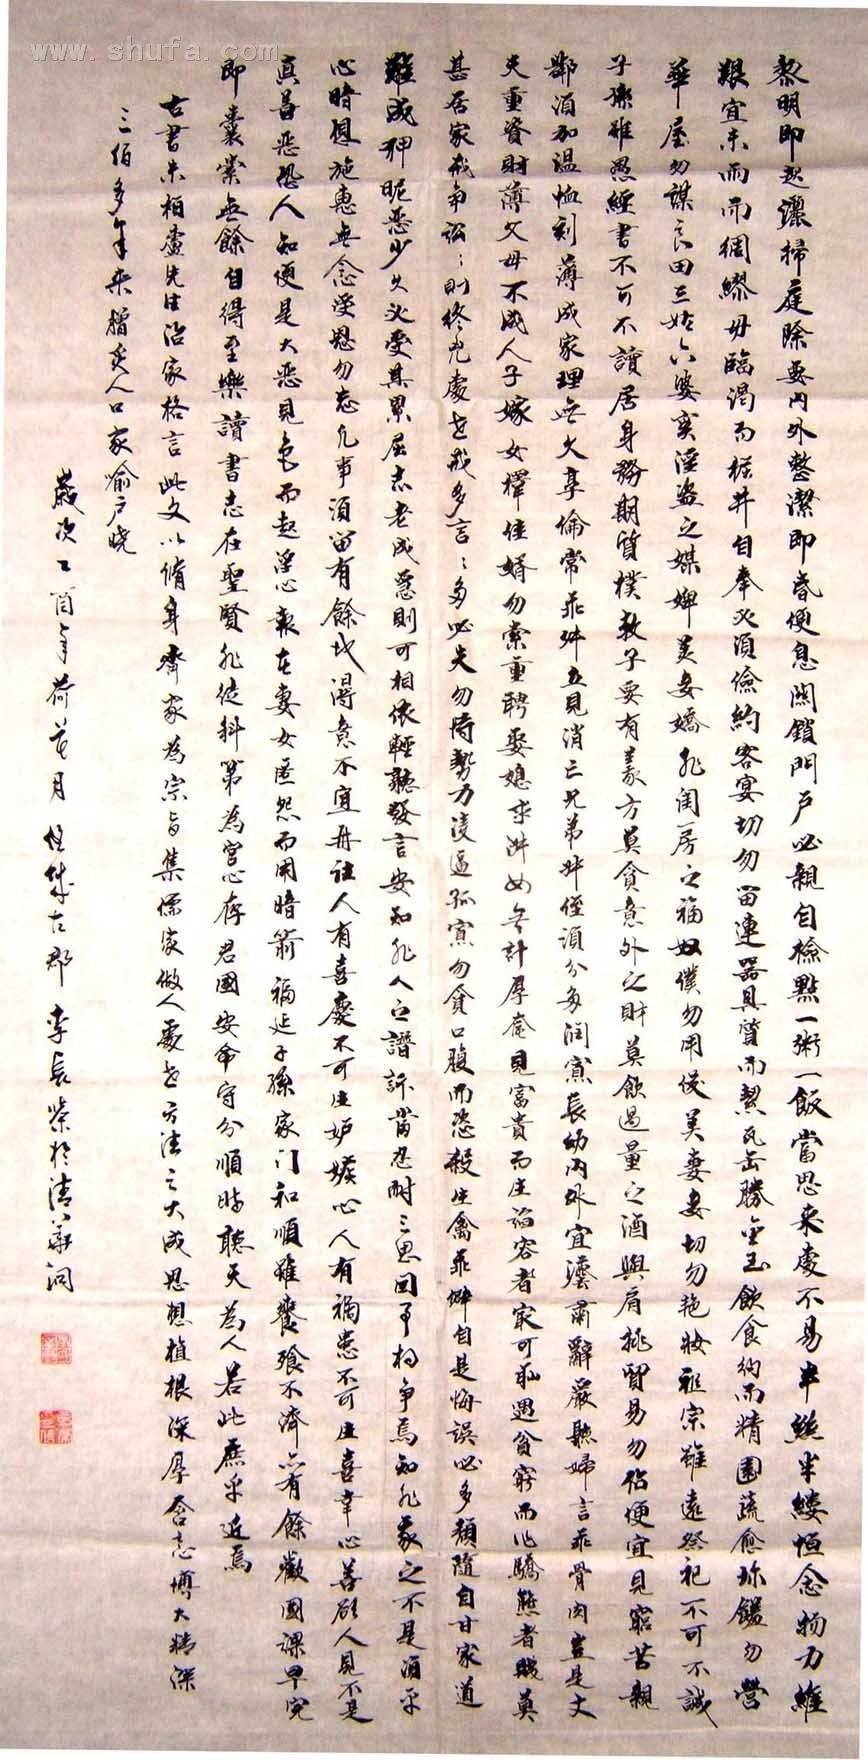 www.shufa.com
黎明即起灑掃庭除要內外整潔即昏便息關鎖門戶必親自檢點一粥一飯當思來處不易半絲半縷恒念物力維
艱宜未雨而綢繆毋臨渴而掘井自奉必須儉約客宴切勿留連器具質而潔瓦缶勝金玉飲食約而精園蔬愈珍饈勿營
華屋勿謀良田三姑六婆實淫盜之媒婢美妾嬌非閨房之福奴僕勿用俊美妻妾切勿艷妝祖宗雖遠祭祀不可不誠
子孫雖愚經書不可不讀居身務期質樸教子要有義方莫貪意外之財莫飲過量之酒與肩挑貿易勿佔便宜見窮苦親
鄰須加溫恤刻薄成家理無久享倫常乖舛立見消亡兄弟叔侄須分多潤寡長幼內外宜法肅辭嚴聽婦言乖骨肉豈是丈
夫重資財薄父母不成人子嫁女擇佳婿勿索重聘娶媳求淑女無計厚奩見富貴而生諂容者最可恥遇貧窮而作驕態者賤莫
甚居家戒爭訟訟則終凶處世戒多言言多必失勿恃勢力凌逼孤寡勿貪口腹而恣殺生禽乖僻自是悔誤必多頹隳自甘家道
難成狎昵惡少久必受其累屈志老成急則可相依輕聽發言安知非人之譖訴當忍耐三思因事相爭焉知非我之不是須平
心暗想施惠無念受恩勿忘凡事須留有餘地得意不宜再往人有喜慶不可生妒嫉心人有禍患不可生喜幸心善欲人見不是
真善惡恐人知便是大惡見色而起淫心報在妻女匿怨而用暗箭禍延子孫家门和順雖饔飧不濟亦有餘歡國課早完
即囊橐無餘自得至樂讀書志在聖賢非徒科第為官心存君國安命守分順時聽天為人若此庶乎近焉
古書朱柏廬先生治家格言此文以脩身齊家為宗旨集儒家做人處世方法之大成思想植根深厚含意博大精深
三佰多年來膾炙人口家喻户曉
歲次乙酉年荷花月任城古郡李長榮於清華洞